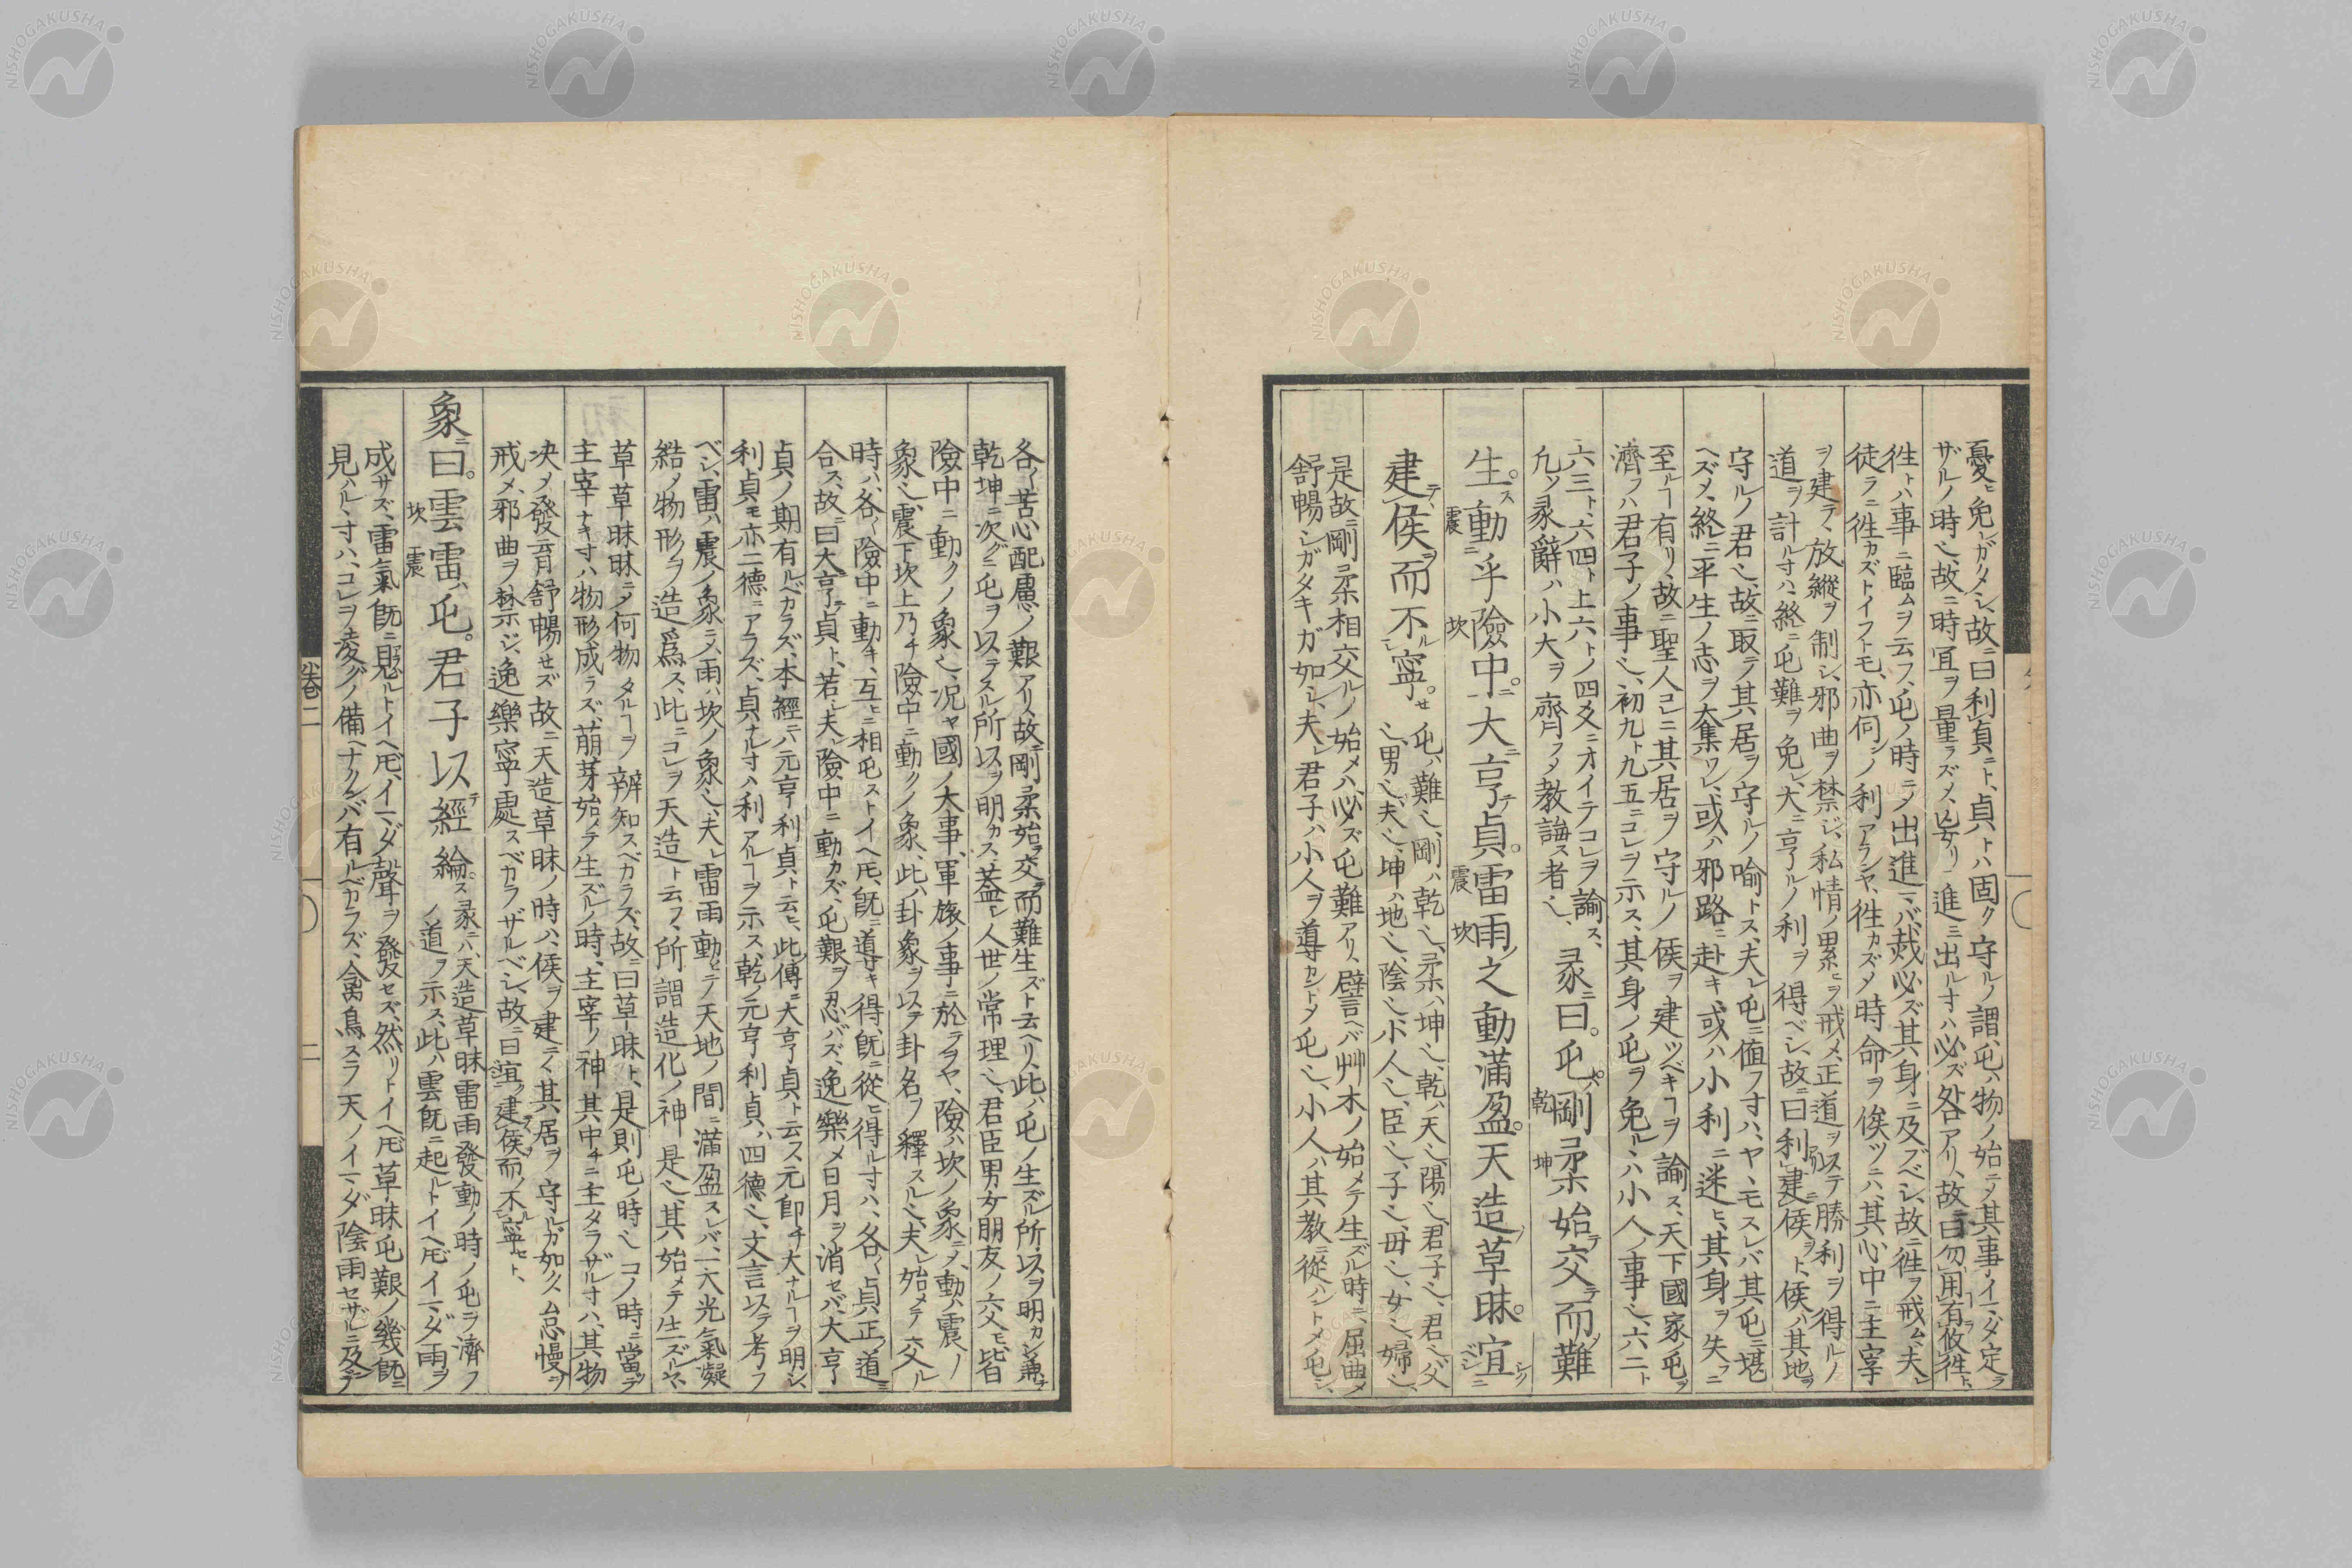 憂ヒ免レガタシ、故ニ曰利貞ニト、貞トハ固ク守ルノ謂、屯ハ物ノ始ニノ其事イマダ定ラ
ザルノ時也、故ニ時宜ヲ量ラズメ、妄リニ進ミ出ルオハ必ズ咎アリ、故曰勿用有攸徃ト、
徃トハ事ニ臨ムヲ云フ、屯ノ時ニノ出進マバ烖必ズ其身ニ及ブベシ、故ニ徃ヲ戒ム夫レ
徒ラニ徃カズトイフトモ、亦何ノ利アランヤ、徃カズメ時命ヲ俟ツニハ、其心中ニ主宰
ヲ建テ、放縱ヲ制シ、邪曲ヲ禁ジ、私情ノ累ヒヲ戒メ、正道ヲ以テ勝利ヲ得ルノ
道ヲ計ルオハ、終ニ屯難ヲ免レ、大ニ亨ルノ利ヲ得ベシ、故ニ曰利建侯ヲト、侯ハ其地ヲ
守ルノ君也、故ニ取テ其居ヲ守ルノ喻トス、夫レ屯ニ値フオハ、ヤヽモスレバ其屯ニ堪
ヘズメ、終ニ平生ノ志ヲ大集ワレ、或ハ邪路ニ赴キ、或ハ小利ニ迷ヒ、其身ヲ失フニ
至ルヿ有リ、故ニ聖人コレニ其居ヲ守ルノ侯ヲ建ツベキヿヲ論ス、天下國家ノ屯ヲ
濟フハ君子ノ事也、初九ト九五ニコレヲ示ス、其身ノ屯ヲ免ルハ小人ノ事也、六二ト
六三ト、六四ト上六トノ四爻ニオイテコレヲ諭ス、
凢ノ彖辭ハ小大ヲ齊フノ教誨ス者也、彖曰。屯ハ剛柔始交テ而難
生ス。動乎險中ニ。大亨テ貞。雷雨之動滿盈。天造草昧。宜シク
建テ侯ヲ而不寧セ。屯ハ難也、剛ハ乾也、柔ハ坤也、乾ハ天也、陽也、君子也、君也、父
也、男也、夫也、坤ハ地也、陰也、小人也、臣也、子也、母也、女也、婦也、
是故ニ剛柔相交ルノ始メハ、必ズ屯難アリ、譬ヘバ艸木ノ始メテ生ズル時ニ、屈曲メ
舒暢シガタキガ如シ、夫レ君子ハ小人ヲ導カントメ屯也、小人ハ其教ニ從ハントメ屯シ、
各〻苦心配慮ノ艱アリ、故ニ剛柔始テ交テ而難生ズト云ヘリ、此ハ屯ノ生ズル所以ヲ明カシ、兼テ
乾坤ニ次グニ屯ヲ以ラスル所以ヲ明カス、葢シ人世ノ常理也、君臣男女朋友ノ交モ、皆
險中ニ動クノ象也、況ヤ國ノ大事、軍旅ノ事ニ於テヲヤ、險ハ坎ノ象ニメ、動ハ震ノ
象也、震下坎上乃チ險中ニ動クノ象、此ハ卦象ヲ以テ卦名ヲ釋スル也、夫レ始メテ交ル
時ハ、各〻險中ニ動キ、互ヒニ相屯ストイヘ𪜈、旣ニ導キ得、旣ニ從ヒ得ルオハ、各〻貞正ノ道ニ
合ス、故ニ曰大亨貞ト、若シ夫レ險中ニ動カズ、屯艱ヲ忍バズ、逸樂メ日月ヲ消セバ、大亨
貞ノ期有ルベカラズ、本經ニハ元亨利貞ト云ヒ、此傳ニ大亨貞ト云ス元卽チ大ナルヿヲ明シ、
利貞モ亦二德ニアラズ、貞ナルオハ利アルヿヲ示ス、乾ノ元亨利貞ハ四德也、文言以テ考フ
ベシ、雷ハ震ノ象ニメ、雨ハ坎ノ象也、夫レ雷雨動ヒテ天地ノ間ニ滿盈スレバ、一大光氣凝
結ノ物形ヲ造爲ス、此ニコレヲ天造ト云フ、所謂造化ノ神是也、其始メテ生ズルヤ、
草草昧昧ニメ何物タルヿヲ辨知スベカラズ、故ニ曰草昧ト、是則屯ノ時也コノ時ニ當テ
主宰ナキオハ物形成ラズ、萠芽始メテ生ズルノ時、主宰ノ神其中チニ主タラザルオハ、其物
决メ發育舒暢セズ故ニ天造草昧ノ時ハ、侯ヲ建テヽ其居ヲ守ルガ如ク、怠慢ヲ
戒メ、邪曲ヲ禁ジ、逸樂寧處スベカラザルベシ、故ニ曰宜ク建侯而不寧セト、
象曰。雲雷ハ屯。君子以テ經綸ス。彖ニハ、天造草昧雷雨發動ノ時ノ屯ヲ濟フ
ノ道ヲ示ス、此ハ雲旣ニ起ルトイヘ𪜈イマダ雨ヲ
成サズ、雷氣旣ニ見ルトイヘ𪜈、イマダ聲ヲ發セズ、然リトイヘ𪜈草昧屯艱ノ幾旣ニ
見ハルヽオハ、コレヲ凌グノ備ヘナクンバ有ルベカラズ、禽鳥スラ天ノイマダ陰雨セザルニ及ンデ
卷二
二